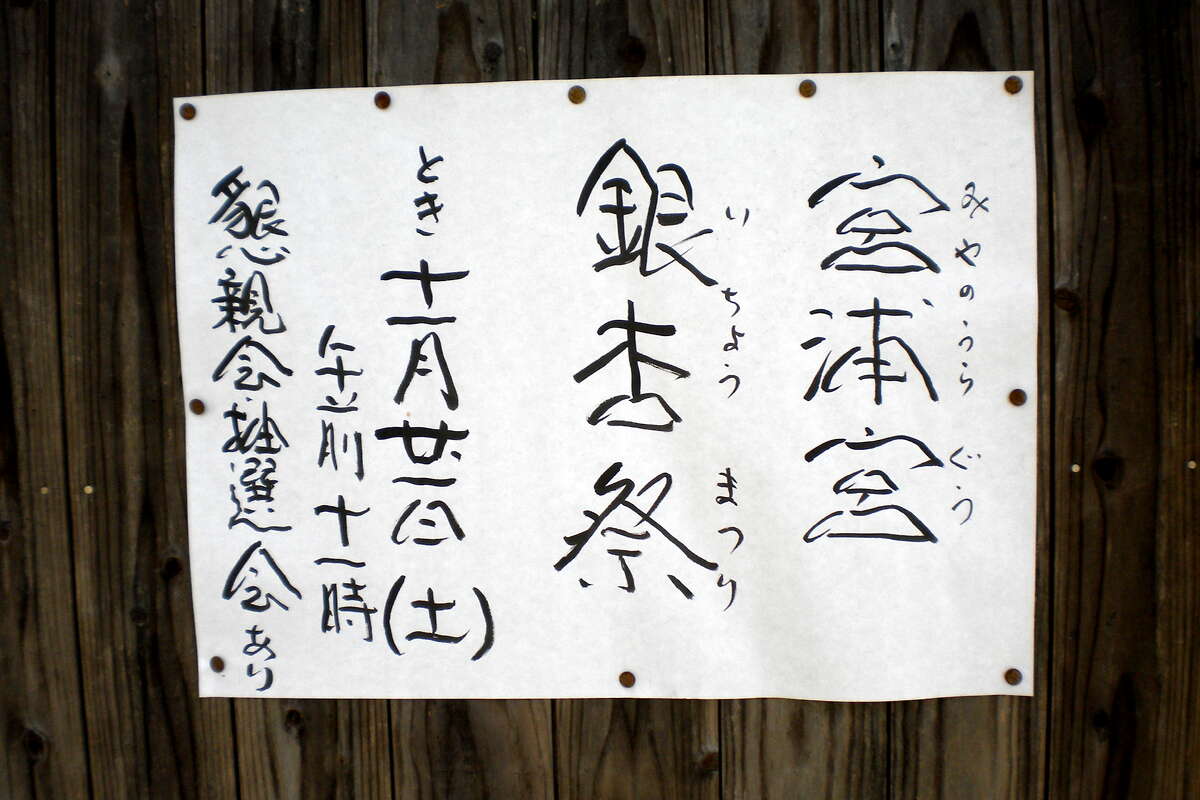 みやのうら ぐう
宮浦宮
いちょう まつり
銀杏祭
とき 十一月廿一日(土)
午前十一時
懇親会・抽選会あり